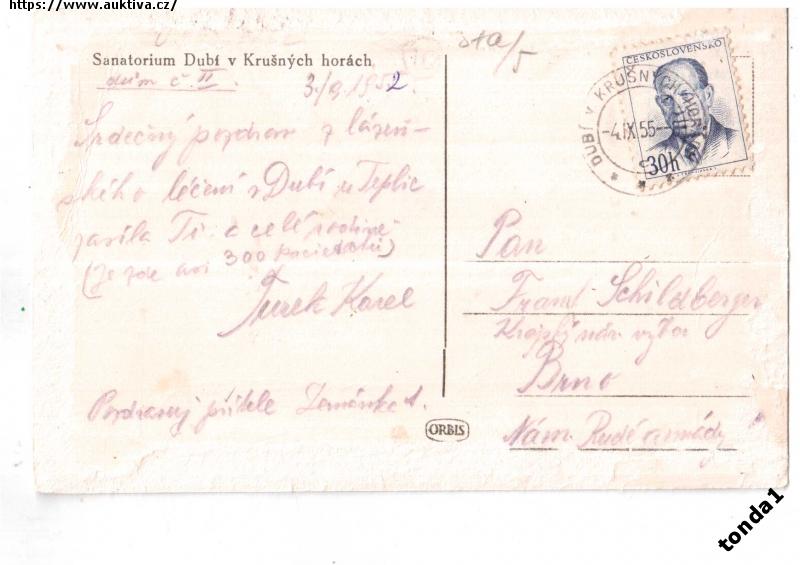 https://www.auktiva.cz/
Sanatorium Dubí v Krušných horách
dům č. II.
3./9. 1952.
Srdečný pozdrav z lázeň-
ského léčení v Dubí u Teplic
zasílá Ti a celé rodině
(Je zde asi 300 pacientů)
Turek Karel
Pozdravuj přítele Zemánka
ORBIS
ČESKOSLOVENSKO
30h
DUBÍ v KRUŠNÝCH HORÁCH
-4.IX.55-
Pan
Frant Schildberger
Krajský nár. výbor
Brno
Nám. Rudé armády
tonda1